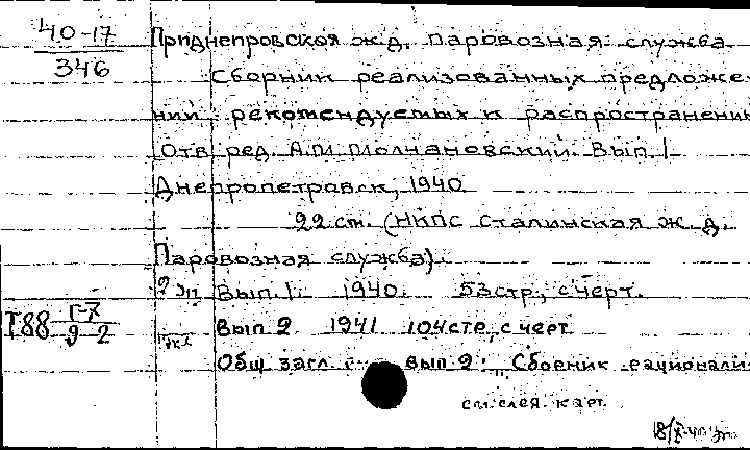 40-17
346
Приднепровская ж.д. паровозная служба
Сборник реализованных предложе-
ний рекомендуемых к распространению
Отв. ред. А.М. Молчановский. Вып. 1
Днепропетровск, 1940
22 см. (НКПС Сталинская ж.д.
Паровозная служба).
Вып. 1. 1940. 53 стр., с черт.
Г88 Г-7
9 2
Вып. 2 1941 104 стр., с черт.
Общ. загл. с вып. 2: Сборник рационали-
см. след. карт.